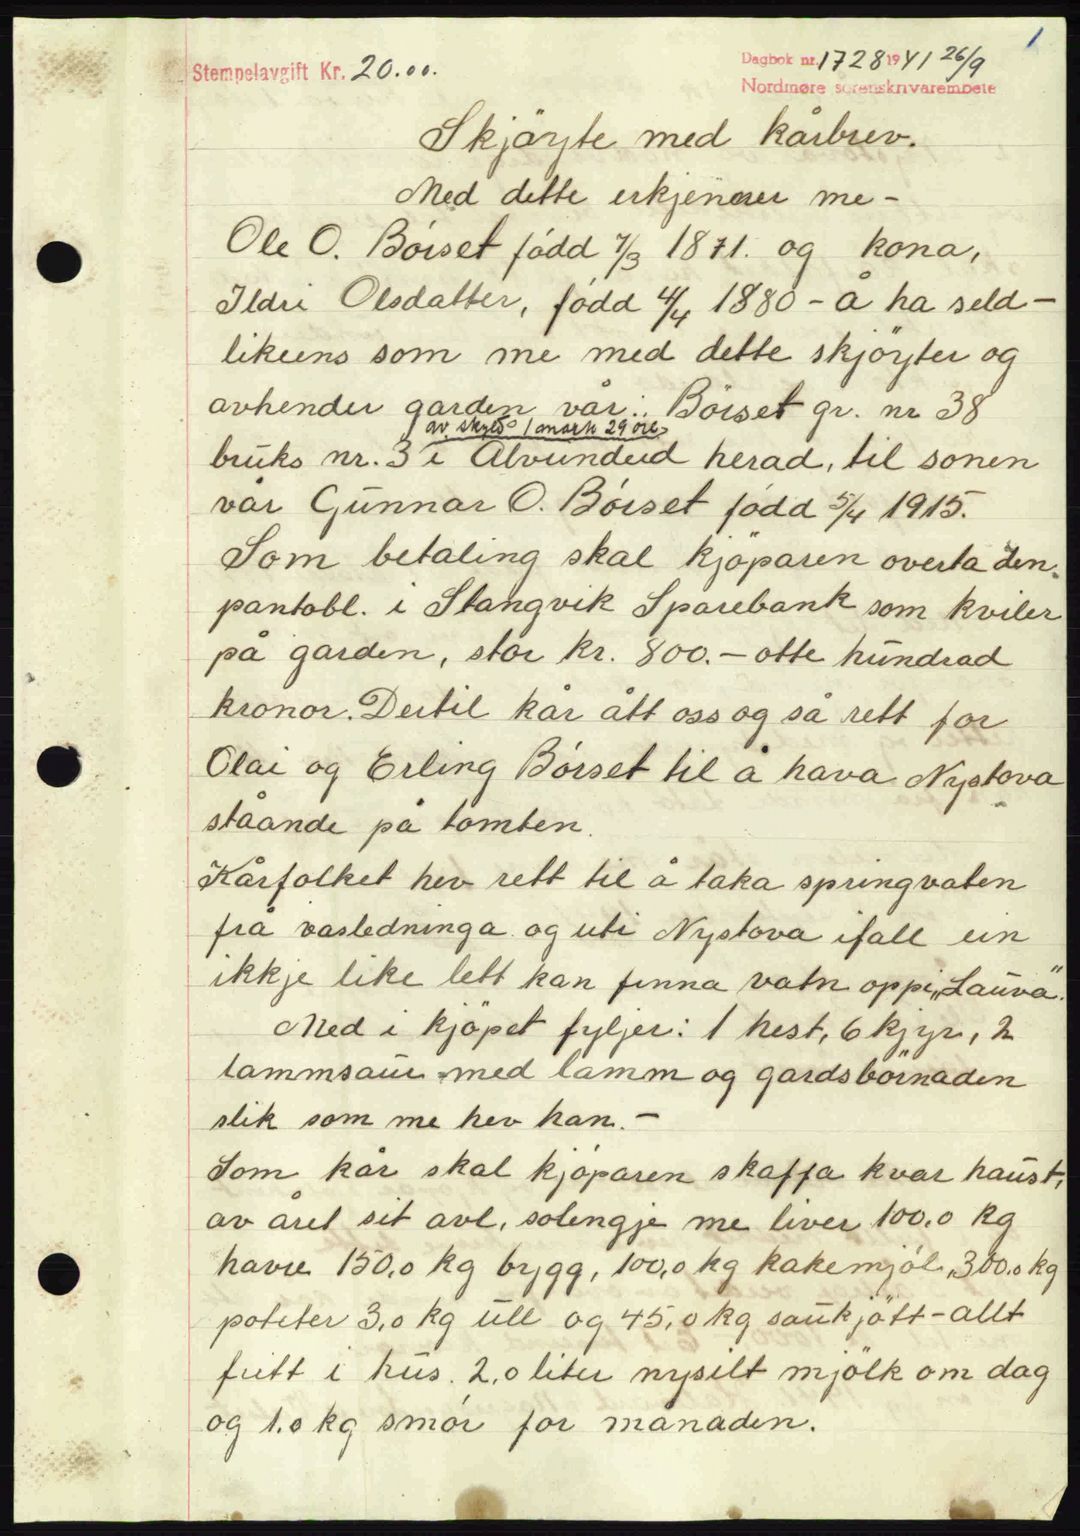 1
Stempelavgift Kr. 20.00.
Dagbok nr. 1728 1941 26/9
Nordmøre sorenskrivarembete
Skjöyte med kårbrev.
Med dette erkjenner me -
Ole O. Börset född 7/3 1871. og kona,
Ildri Olsdatter, född 4/4 1880 - å ha seld -
likeens som me med dette skjöyter og
avhender garden vår: Börset gr. nr 38
av skyld 1 mark 29 öre
bruks nr. 3 i Ålvundeid herad, til sonen
vår Gunnar O. Börset född 5/4 1915.
Som betaling skal kjöparen overta den
pantobl. i Stangvik Sparebank som kviler
på garden, stor kr. 800.- otte hundrad
kronor. Dertil kår ått oss og så rett for
Olai og Erling Börset til å hava Nystova
ståande på tomten.
Kårfolket hev rett til å taka springvaten
frå vasledninga og uti Nystova ifall ein
ikkje like lett kan finna vatn oppi „Lauva".
Med i kjöpet fyljer: 1 hest, 6 kjyr, 2
lammsau med lamm og gardsbörnaden
slik som me hev han. -
Som kår skal kjöparen skaffa kvar haust,
av året sit avl, solengje me liver 100,0 kg
havre 150,0 kg bygg, 100,0 kg kakemjöl, 300,0 kg
poteter 3,0 kg ull og 45,0 kg saukjött - allt
fritt i hus. 2,0 liter nysilt mjölk om dag
og 1.0 kg smör for månaden.